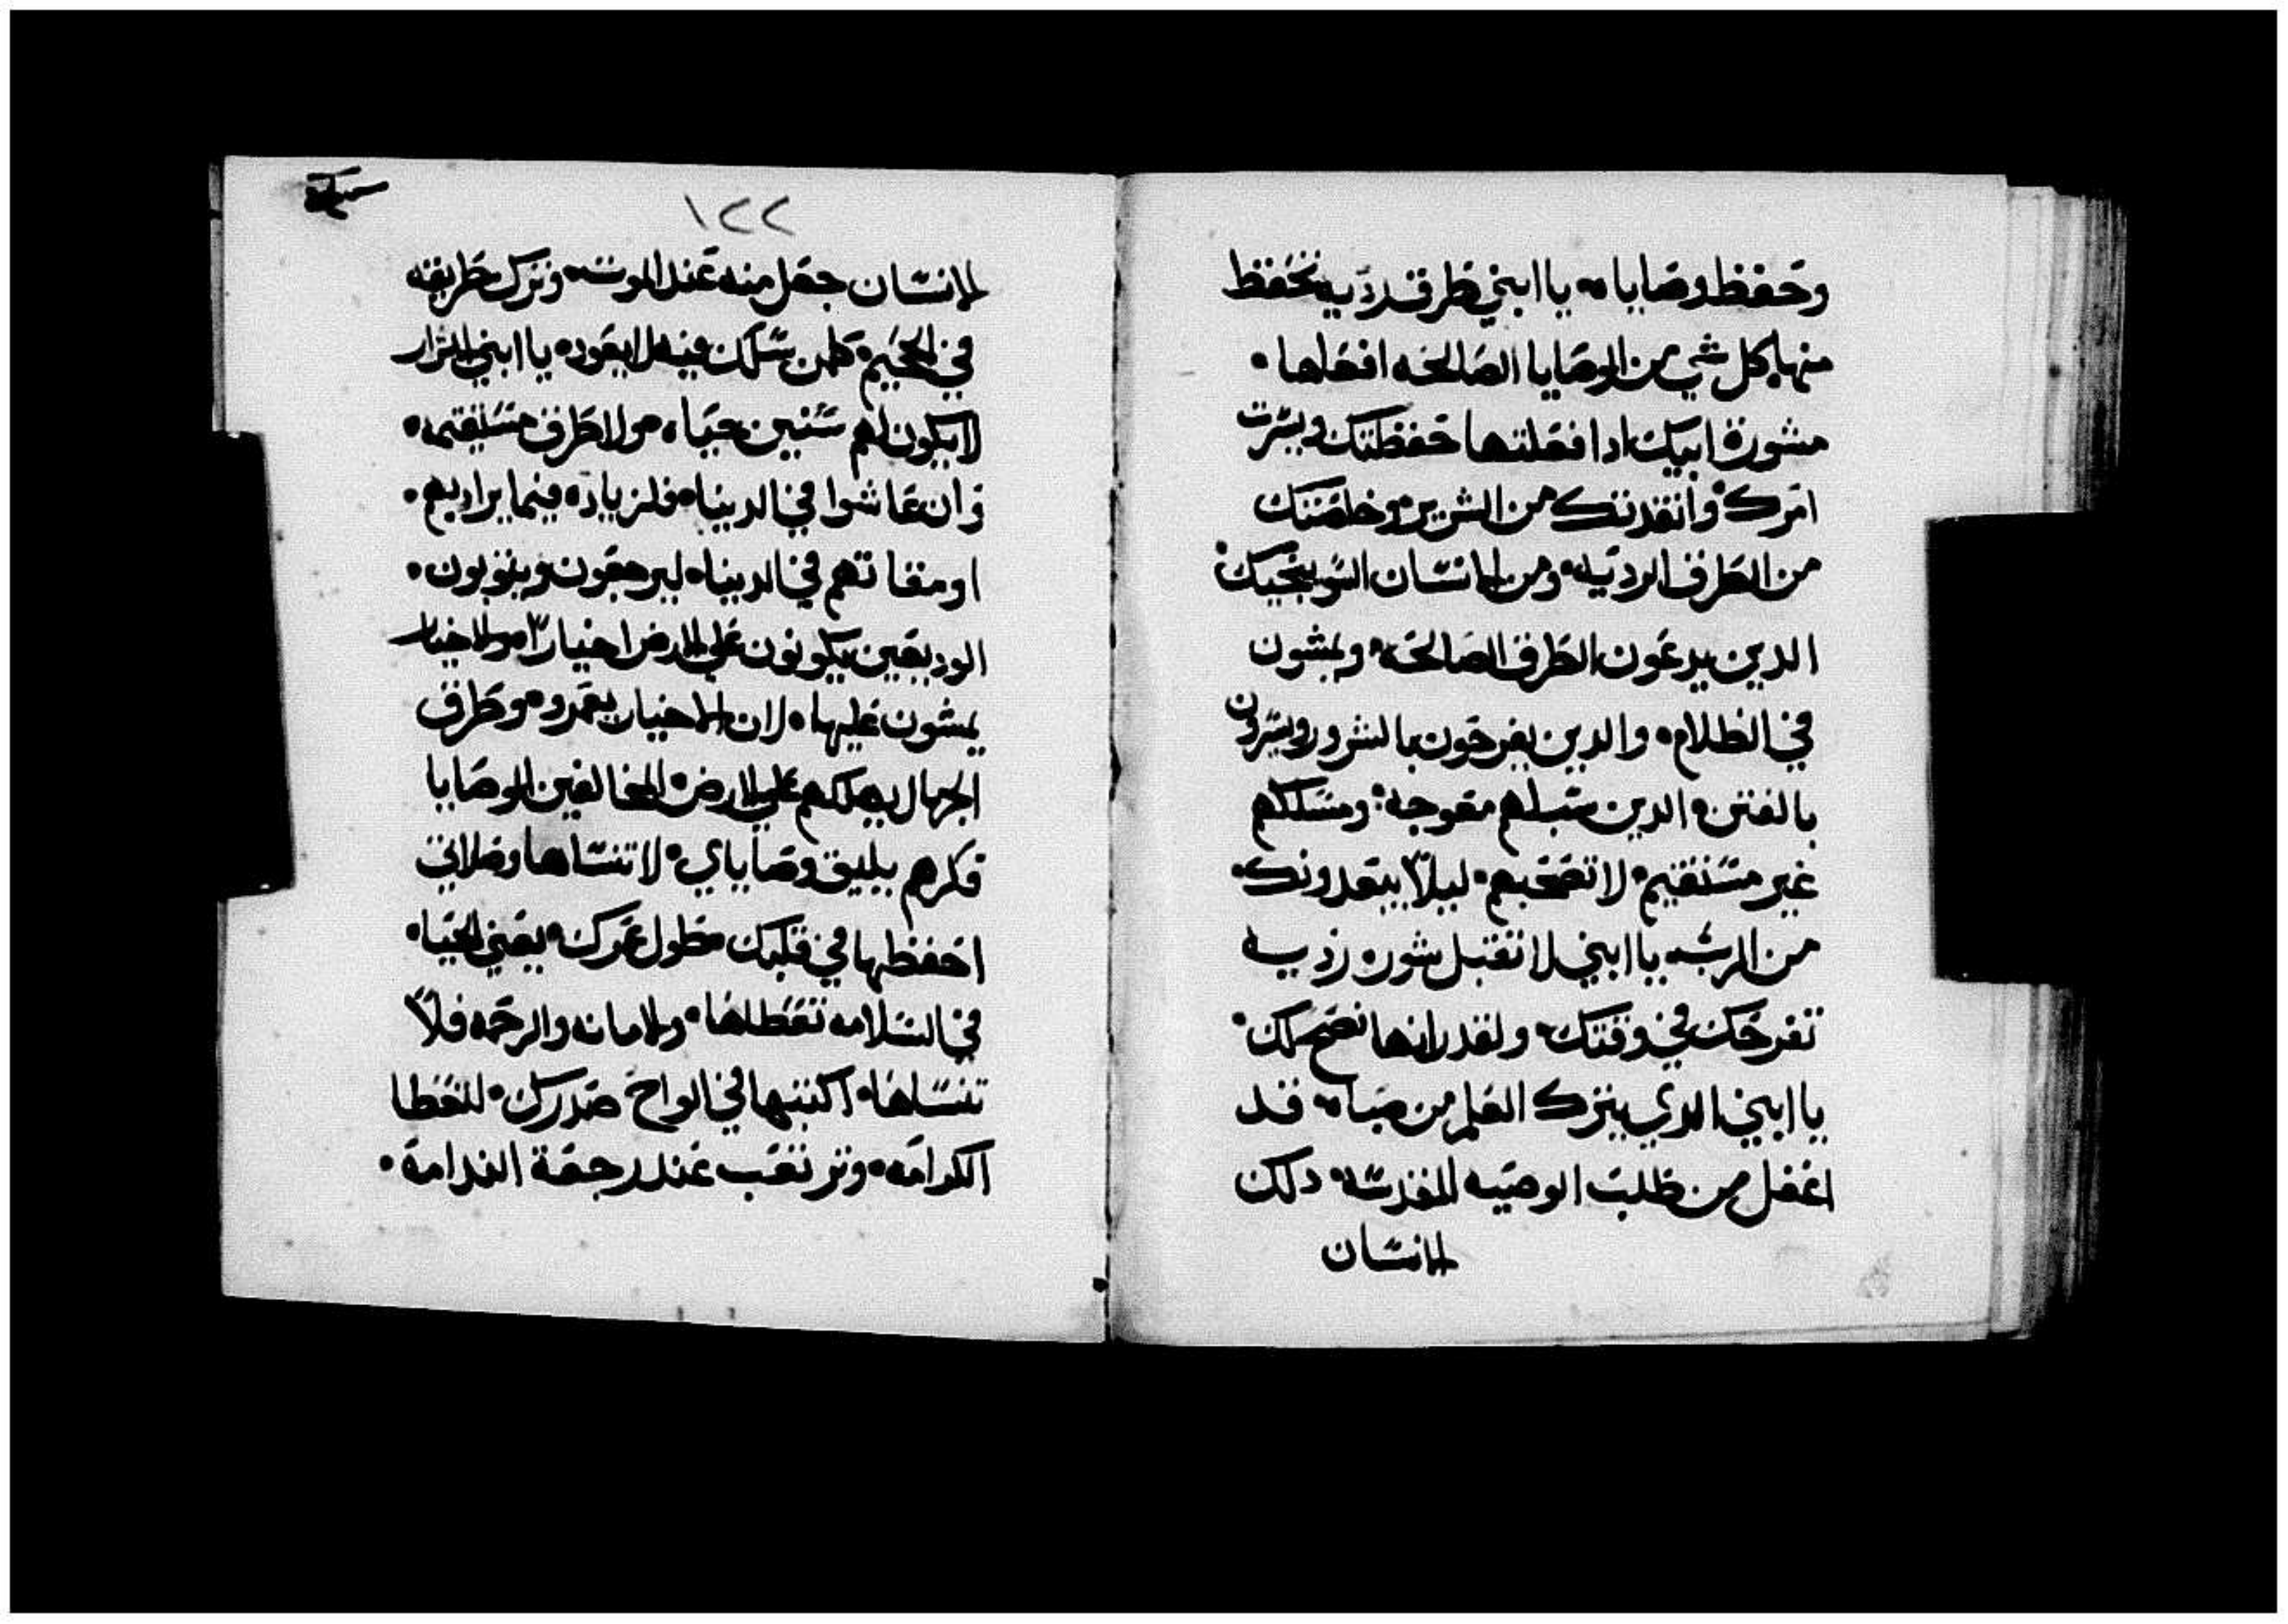 وحفظ وصاياه يا ابني طرق رديه تحفظ
منها بكل شي من الوصايا الصالحه افعلها
مشورة ابيك ادا فعلتها حفظتك ويسرت
امرك وانقدتك من الشرير وخلصتك
من الطرق الرديه ومن الانسان السو ينجيك
الدين يدعون الطرق الصالحه ويمشون
في الظلام والدين يفرحون بالشرور ويسرون
بالفتن الدين سبلهم معوجه ومسلكهم
غير مستقيم لا تصحبهم ليلاً يبعدونك
من الرب يا ابني لا تقبل شوره رديه
تفرحك في وقتك ولقد رانها تصح لك
يا ابني الدي يترك العلم من صباه قد
اغفل من طلبت الوصيه المقدسه دلك
الانسان
١٢٢
الانسان جعل منه عند الموت وترك طريقه
في الجحيم كلمن سلك فيه لا يعود يا ابني الشرار
لا يكون لهم سنين حياه ولا طرق مستقيمه
وان عاشوا في الدنياه فلزياده فيما يراد بهم
او منفاتهم في الدنياه ليرجعون ويتوبون
الوديعين يكونون علي الارض اخياراً والاخيار
يمشون عليها لان الاخيار يعمدوه وطرق
الجهال يهلكهم علي الارض المخالفين الوصايا
فكرهم يليق وصاياي لا تنساها وصلاتي
احفظها في قلبك طول عمرك يعني الحياه
في السلامه تعطاها والامانه والرحمه فلاً
تنساها اكتبها في الواح صدرك لتعطا
الكرامه وترتعب عند رجعة الندامة